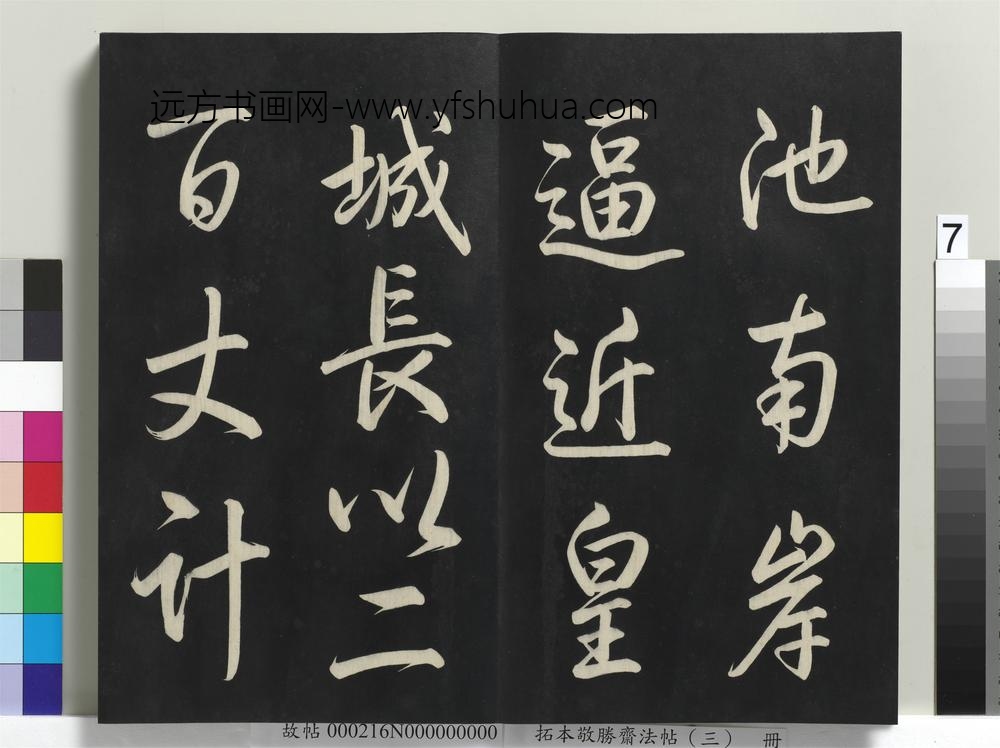 池南岸
逼近皇
城長以二
百丈计
远方书画网-www.yfshuhua.com
7
故帖 000216N000000000
拓本敬勝齋法帖（三） 冊